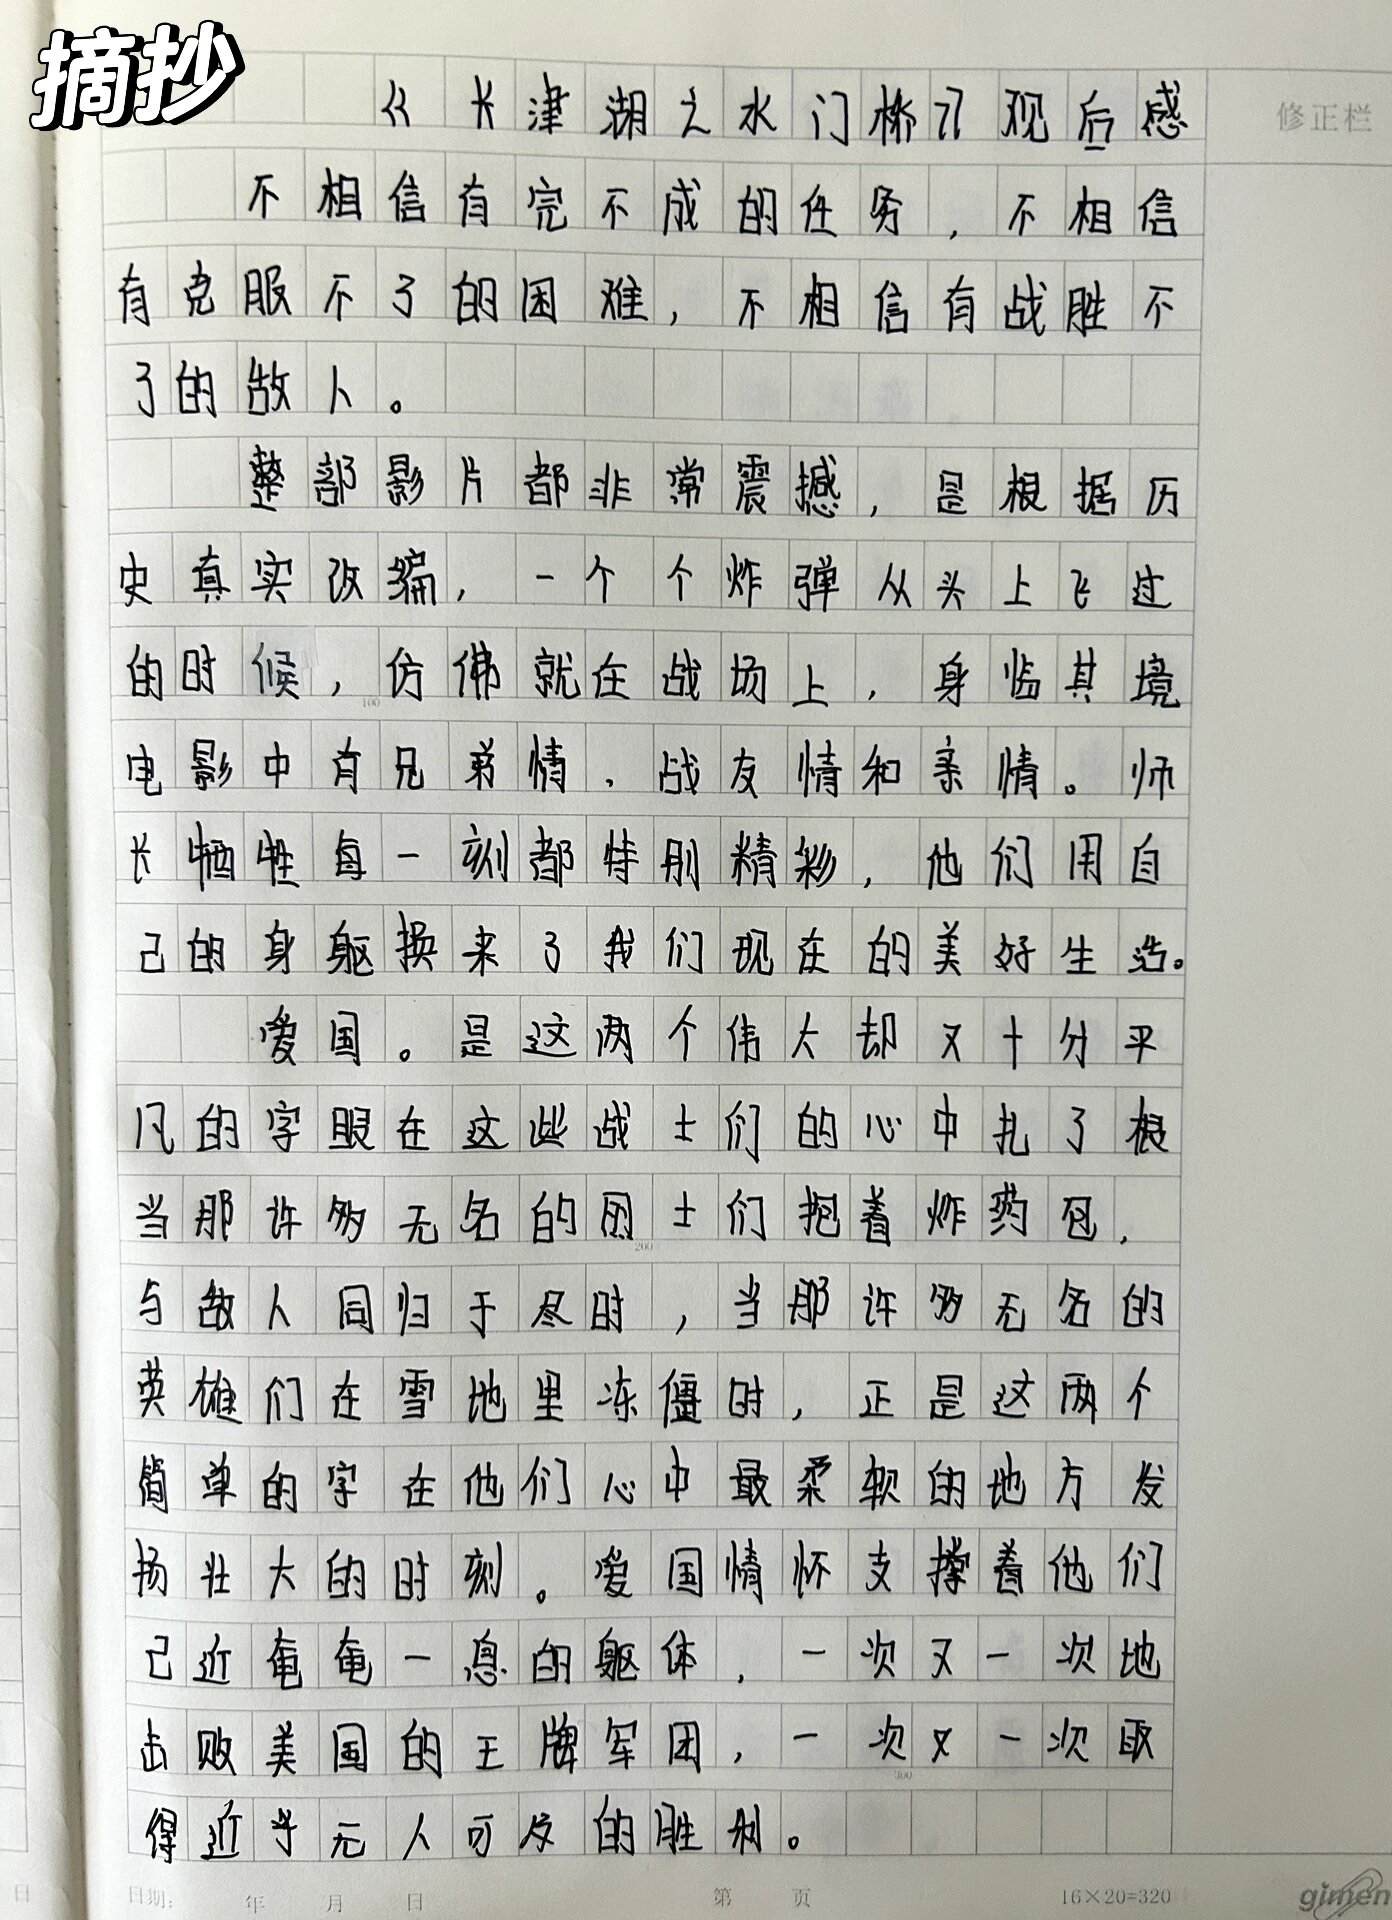 摘抄
《长津湖之水门桥》观后感
修正栏
不相信有完不成的任务，不相信
有克服不了的困难，不相信有战胜不
了的敌人。
整部影片都非常震撼，是根据历
史真实改编，一个个炸弹从头上飞过
的时候，仿佛就在战场上，身临其境
100
电影中有兄弟情、战友情和亲情。师
长牺牲每一刻都特别精彩，他们用自
己的身躯换来了我们现在的美好生活。
爱国。是这两个伟大却又十分平
凡的字眼在这些战士们的心中扎了根
当那许多无名的团士们抱着炸药包，
200
与敌人同归于尽时，当那许多无名的
英雄们在雪地里冻僵时，正是这两个
简单的字在他们心中最柔软的地方发
扬壮大的时刻。爱国情怀支撑着他们
已近奄奄一息的躯体，一次又一次地
击败美国的王牌军团，一次又一次取
300
得近乎无人可及的胜利。
日
日期： 年 月 日 第 页 16×20=320 gimen